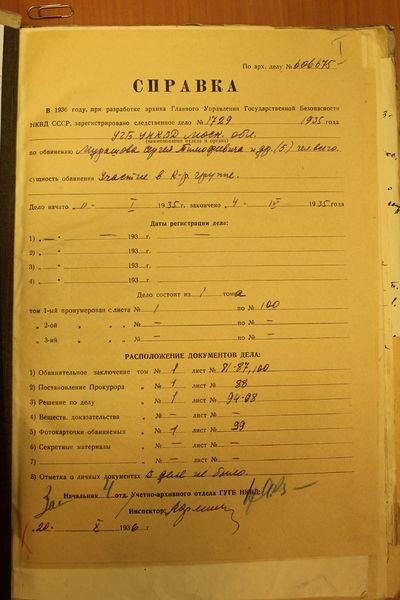 I
По арх. делу № 606675
СПРАВКА
В 1936 году, при разработке архива Главного Управления Государственной Безопасности
НКВД СССР, зарегистрировано следственное дело № 1729 1935 года
УГБ УНКВД Моск. обл.
(наименование отдела и органа)
по обвинению Сергея Тимофеевича и др. (5) человек.
сущность обвинения Участие в к-р группе.
Дело начато „ “ I 1935 г. закончено „ 4 “ IV 1935 года
Даты регистрации дела:
1) „ — “ — 193 г. —
2) „ — “ — 193 г.
3) „ — “ — 193 г.
4) „ — “ — 193 г.
Дело состоит из 1 тома
том 1-ый пронумерован с листа № 1 по № 100
„ 2-ой „ „ № — по № —
„ 3-ий „ „ № — по № —
РАСПОЛОЖЕНИЕ ДОКУМЕНТОВ ДЕЛА:
1) Обвинительное заключение том № 1 лист № 81-87, 100
2) Постановление Прокурора „ № 1 лист № 88
3) Решение по делу „ № 1 лист № 94-98
4) Веществ. доказательства „ № — лист № —
5) Фотокарточки обвиняемых „ № 1 лист № 99
6) Секретные материалы „ № — лист № —
7) — „ № — лист № —
8) Отметка о личных документах в деле не было.
Зам Начальник 4 отд. Учетно-архивного отдела ГУГБ НКВД:
Инспектор:
„ 20 “ X 1936 г.